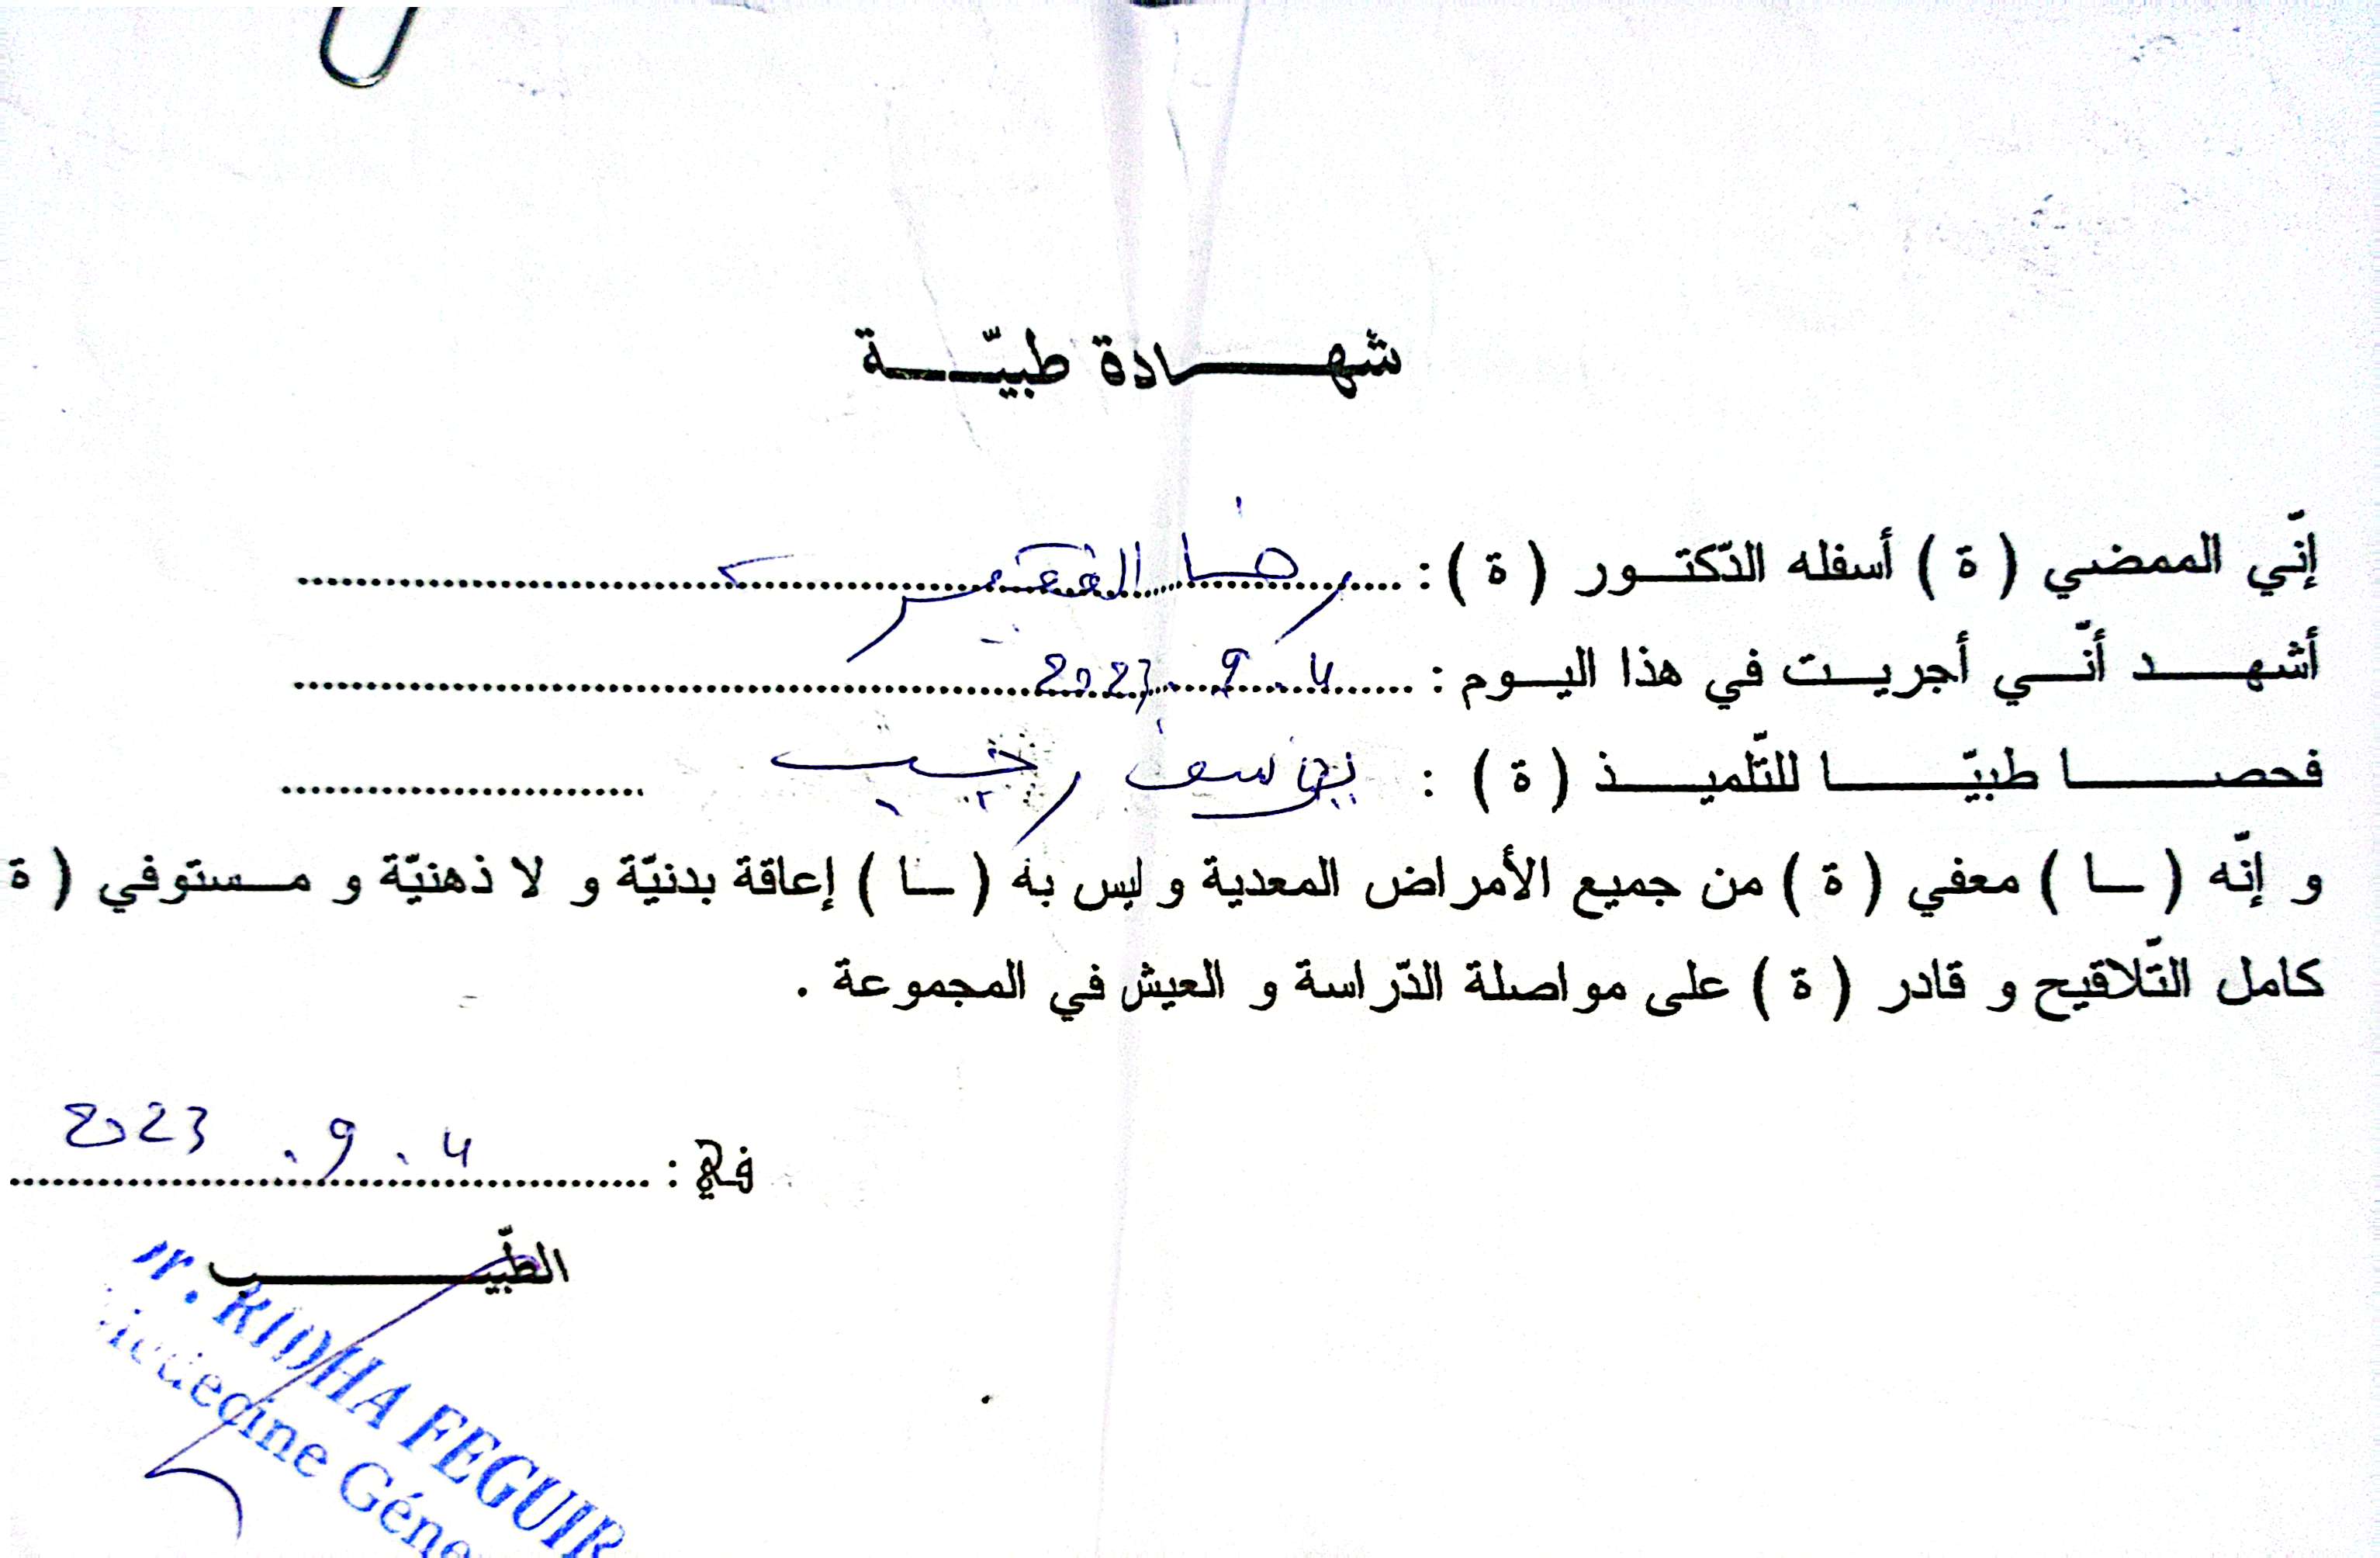 شهادة طبيّة
إنّي الممضي ( ة ) أسفله الدّكتور ( ة ) : رضا الفقير
أشهد أنّي أجريت في هذا اليوم : 4 . 9 . 2023
فحصا طبيّا للتّلميذ ( ة ) : يوسف رجب
و إنّه ( ـا ) معفي ( ة ) من جميع الأمراض المعدية و ليس به ( ـا ) إعاقة بدنيّة و لا ذهنيّة و مستوفي ( ة
كامل التّلاقيح و قادر ( ة ) على مواصلة الدّراسة و العيش في المجموعة .
في : 4 . 9 . 2023
الطّبيب
r. RIDHA FEGUIR
Médecine Géné